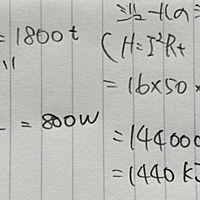 = 1800t
= 800W
(H=I²Rt
= 16×50×
= 144000
= 1440 kJ